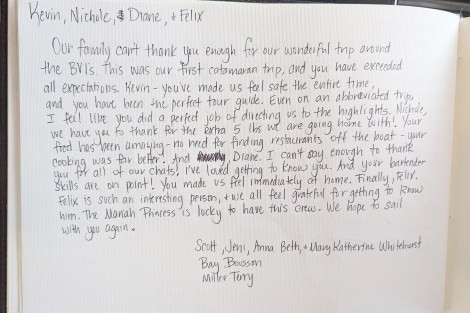 Kevin, Nichole, & Diane, + Felix
Our family can't thank you enough for our wonderful trip around
the BVI's. This was our first catamaran trip, and you have exceeded
all expectations. Kevin - you've made us feel safe the entire time,
and you have been the perfect tour guide. Even on an abbreviated trip,
I feel like you did a perfect job of directing us to the highlights. Nichole,
we have you to thank for the extra 5 lbs we are going home with! Your
food has been amazing - no need for finding restaurants off the boat - your
cooking was far better! And Diane. I can't say enough to thank
you for all of our chats! I've loved getting to know you. And your bartender
skills are on point! You made us feel immediately at home. Finally, Felix.
Felix is such an interesting person, + we all feel grateful for getting to know
him. The Mariah Princess is lucky to have this crew. We hope to sail
with you again.
Scott, Jeni, Anna Beth, + Mary Katherine Whitehurst
Bay
Miller Terry